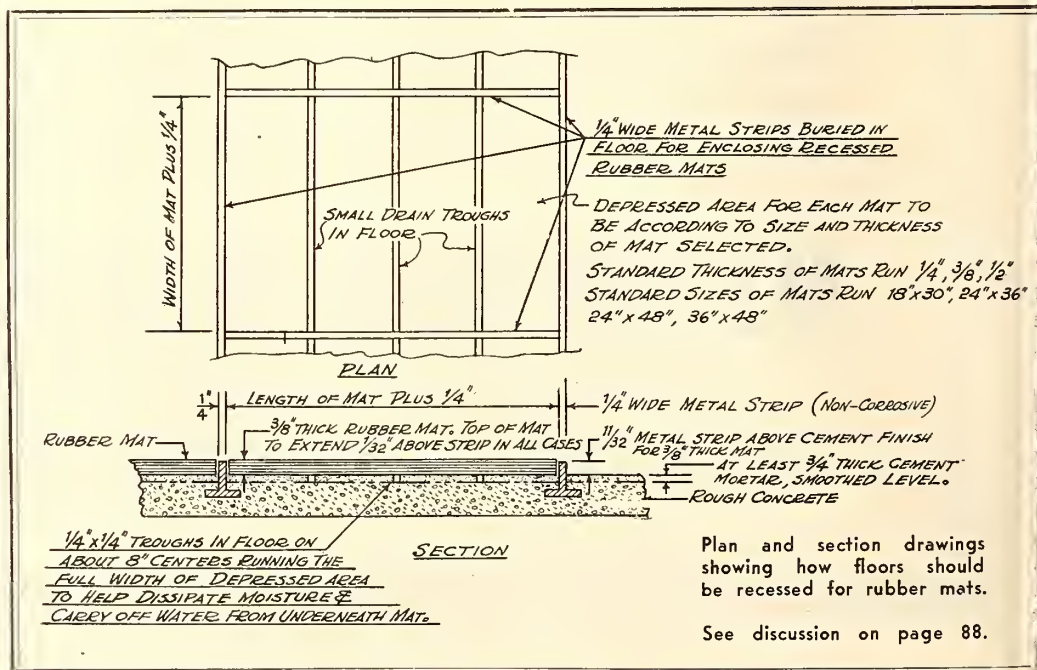 WIDTH OF MAT PLUS 1/4"
1/4" WIDE METAL STRIPS BURIED IN
FLOOR FOR ENCLOSING RECESSED
RUBBER MATS
SMALL DRAIN TROUGHS
IN FLOOR
DEPRESSED AREA FOR EACH MAT TO
BE ACCORDING TO SIZE AND THICKNESS
OF MAT SELECTED.
STANDARD THICKNESS OF MATS RUN 1/4", 3/8", 1/2"
STANDARD SIZES OF MATS RUN 18"x30", 24"x36"
24"x48", 36"x48"
PLAN
1/4"
LENGTH OF MAT PLUS 1/4"
1/4" WIDE METAL STRIP (NON-CORROSIVE)
RUBBER MAT
3/8" THICK RUBBER MAT. TOP OF MAT
TO EXTEND 1/32" ABOVE STRIP IN ALL CASES
11/32" METAL STRIP ABOVE CEMENT FINISH
FOR 3/8" THICK MAT
AT LEAST 3/4" THICK CEMENT
MORTAR, SMOOTHED LEVEL.
ROUGH CONCRETE
1/4"x1/4" TROUGHS IN FLOOR ON
ABOUT 8" CENTERS RUNNING THE
FULL WIDTH OF DEPRESSED AREA
TO HELP DISSIPATE MOISTURE &
CARRY OFF WATER FROM UNDERNEATH MAT.
SECTION
Plan and section drawings
showing how floors should
be recessed for rubber mats.
See discussion on page 88.